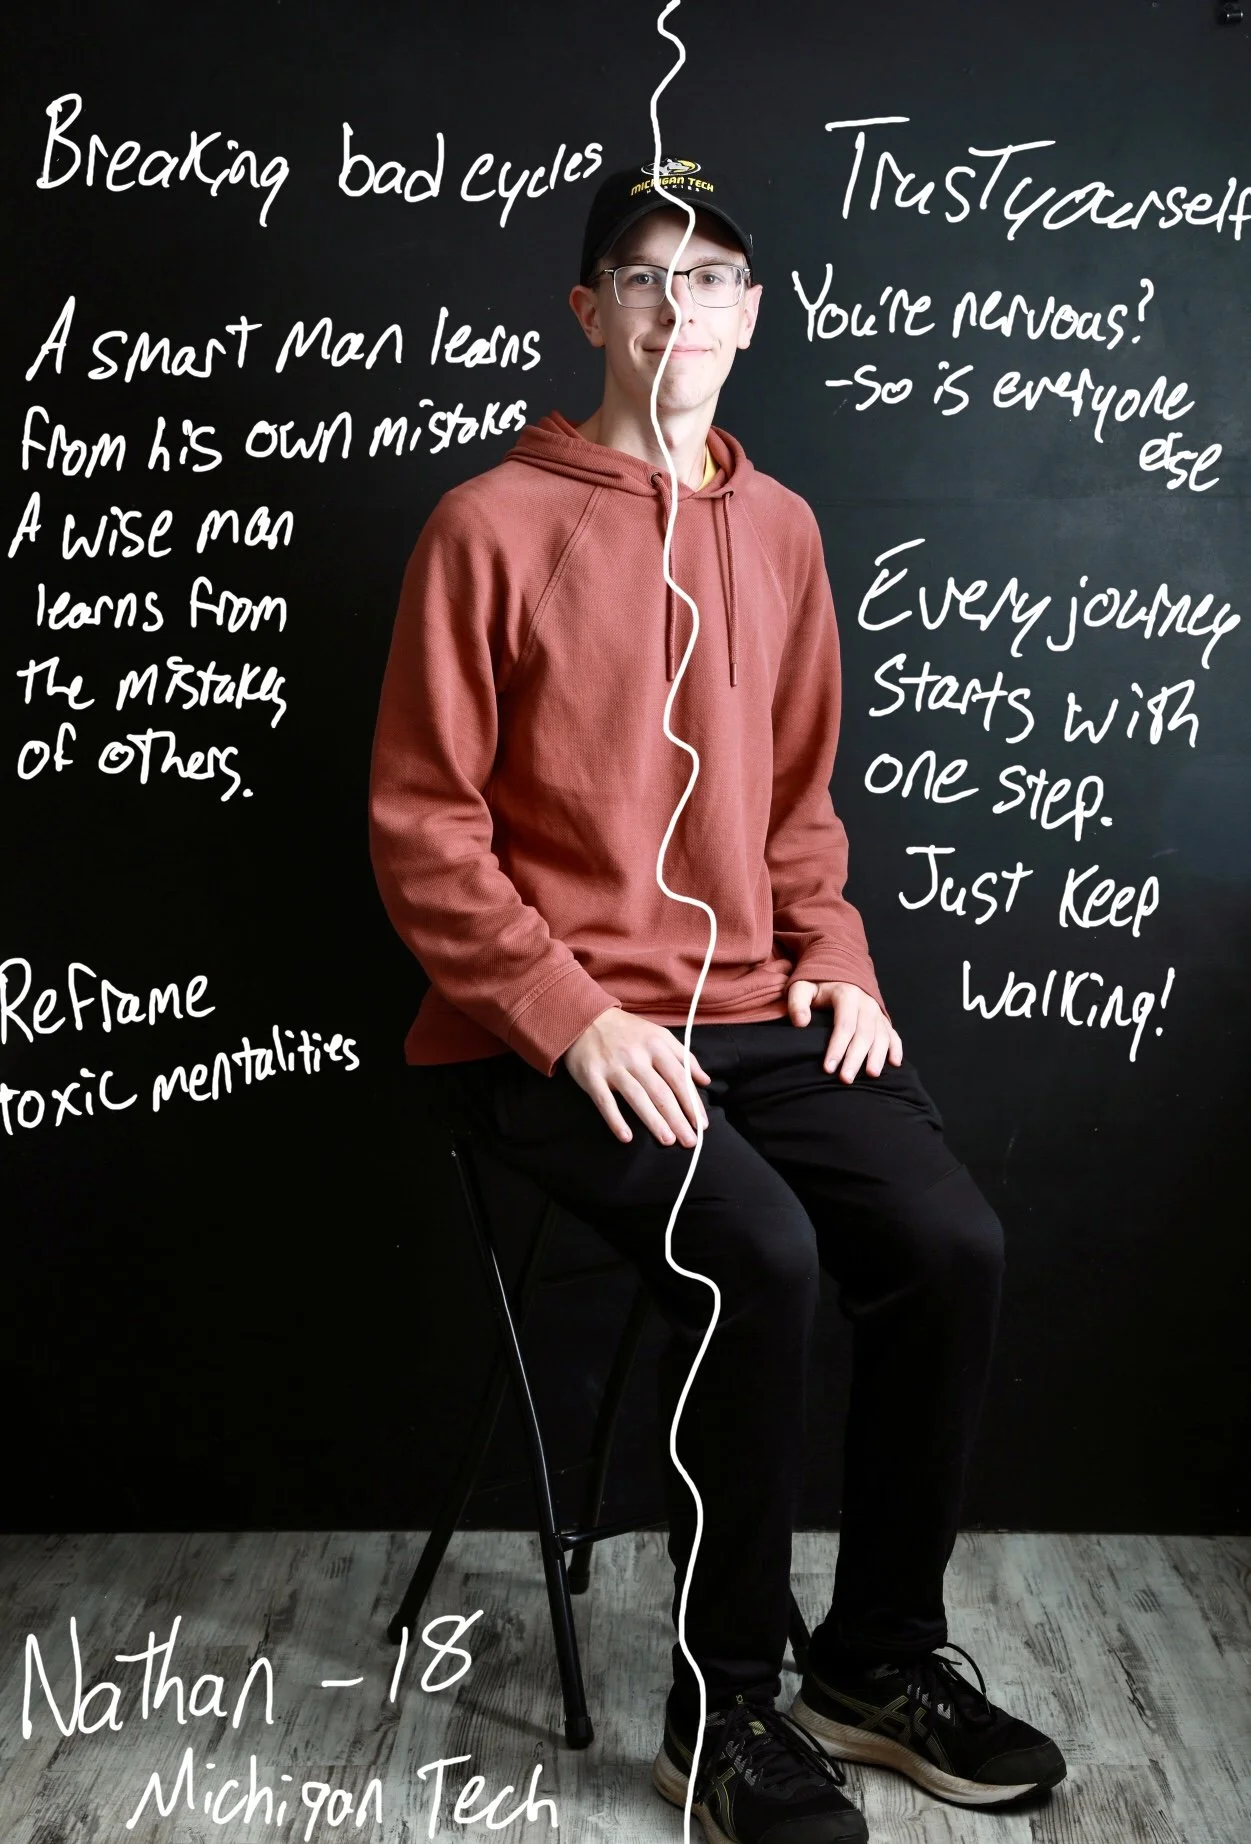 Breaking bad cycles
A smart man learns
from his own mistakes
A wise man
learns from
the mistakes
of others.
Reframe
toxic mentalities
MICHIGAN TECH
HUSKIES
Trust yourself
You're nervous?
-so is everyone
else
Every journey
starts with
one step.
Just keep
walking!
Nathan - 18
Michigan Tech